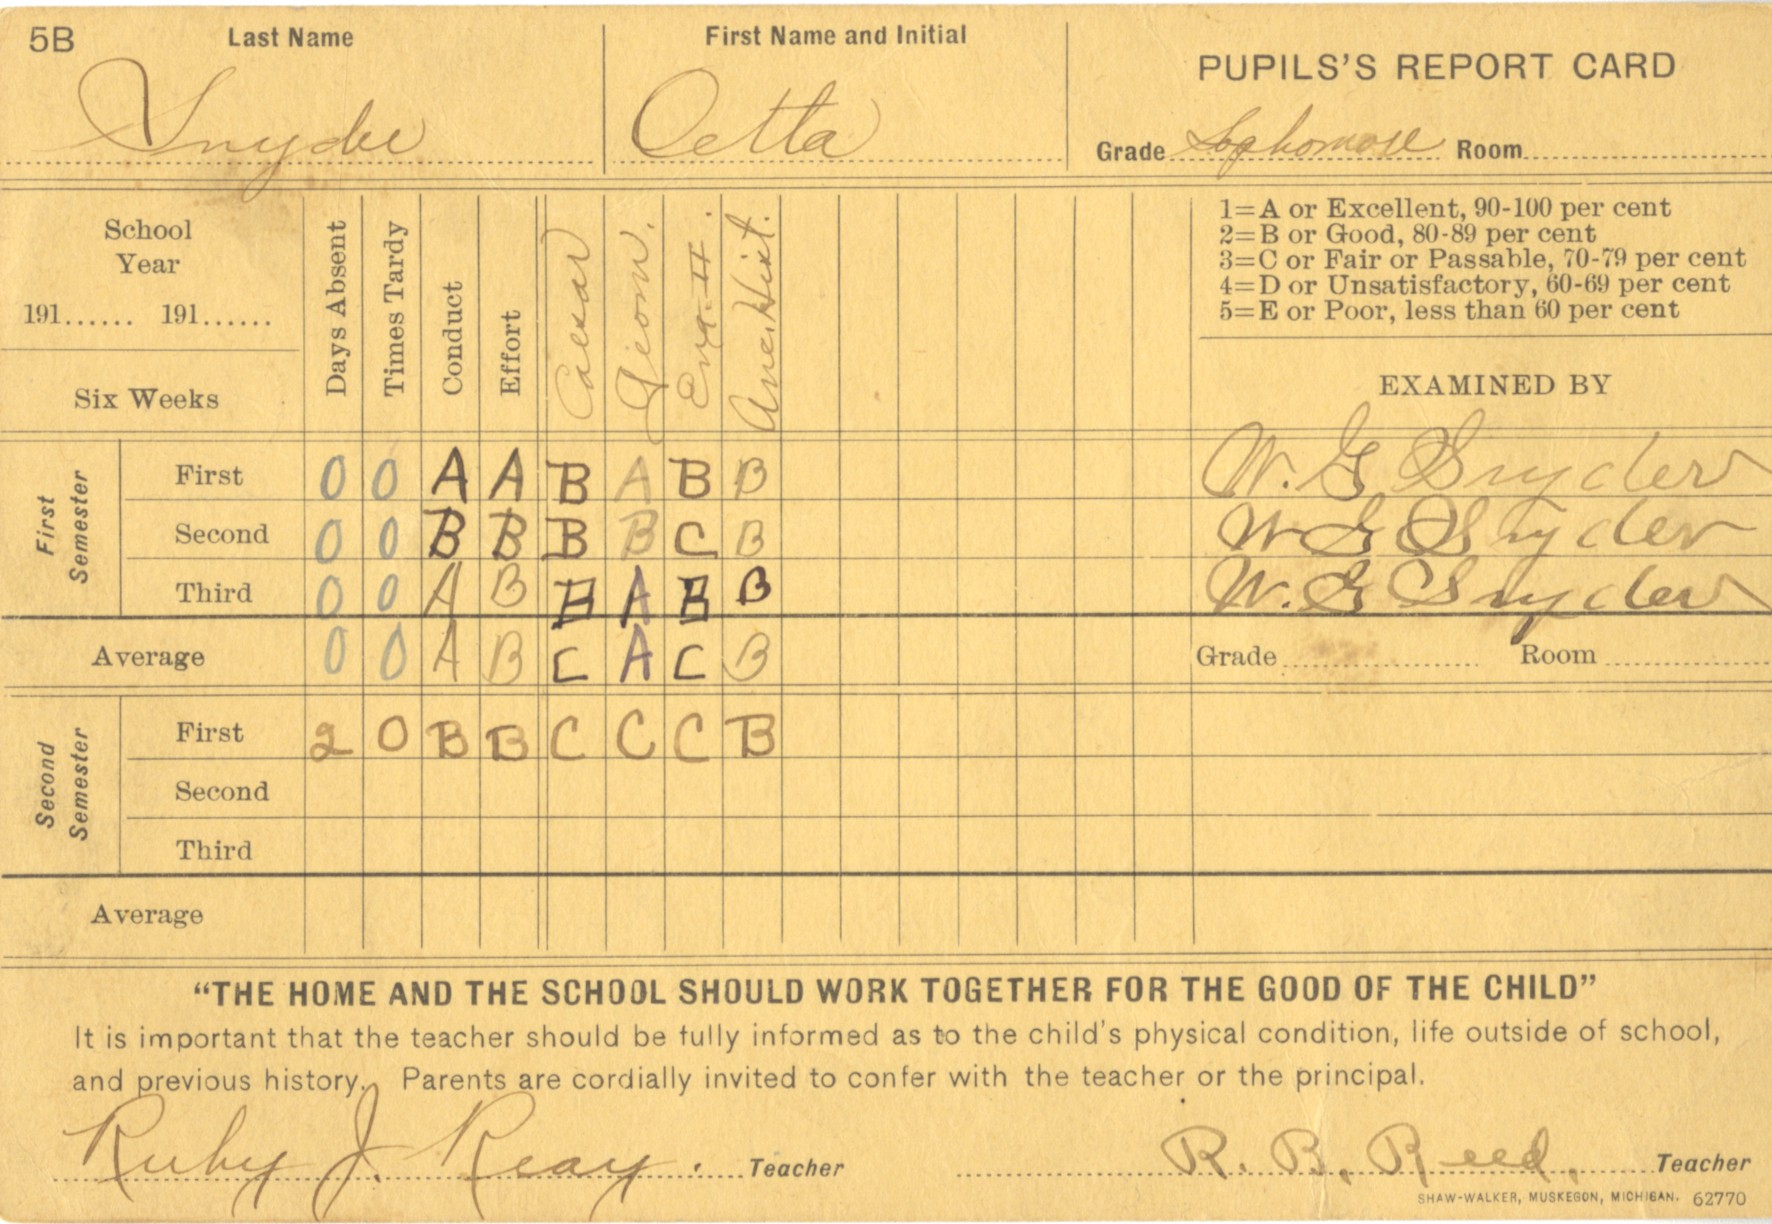 5B Last Name First Name and Initial PUPILS'S REPORT CARD
Snyder Oetta Grade Sophomore Room
School Year
191...... 191......
Six Weeks
Days Absent
Times Tardy
Conduct
Effort
Caesar
Geom.
Eng. II.
Anc. Hist.
1=A or Excellent, 90-100 per cent
2=B or Good, 80-89 per cent
3=C or Fair or Passable, 70-79 per cent
4=D or Unsatisfactory, 60-69 per cent
5=E or Poor, less than 60 per cent
EXAMINED BY
First Semester
First 0 0 A A B A B B W. G Snyder
Second 0 0 B B B B C B W G Snyder
Third 0 0 A B B A B B W. G Snyder
Average 0 0 A B C A C B Grade Room
Second Semester
First 2 0 B B C C C B
Second
Third
Average
"THE HOME AND THE SCHOOL SHOULD WORK TOGETHER FOR THE GOOD OF THE CHILD"
It is important that the teacher should be fully informed as to the child's physical condition, life outside of school,
and previous history. Parents are cordially invited to confer with the teacher or the principal.
Ruby J. Reay. Teacher R. B. Reed. Teacher
SHAW-WALKER, MUSKEGON, MICHIGAN. 62770